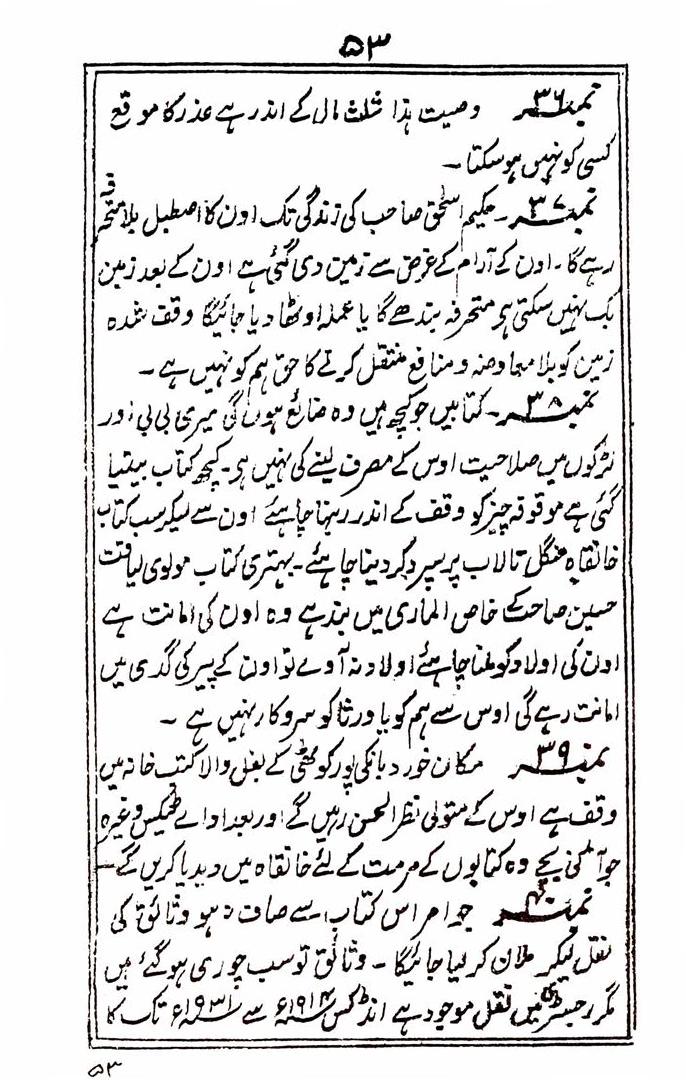 ۵۳
نمبر ۳۶ وصیت ہذا ثلث مال کے اندر ہے عذر کا موقع
کسی کو نہیں ہو سکتا ۔
نمبر ۳۷ ۔ حکیم اسحٰق صاحب کی زندگی تک اون کا اصطبل بلا متحرفہ
رہے گا ۔ اون کے آرام کے غرض سے زمین دی گئی ہے اون کے بعد زمین
بک نہیں سکتی ہو متحرفہ بندھے گا یا عملہ اوٹھا دیا جائیگا وقف شدہ
زمین کو بلا معاوضہ و منافع منتقل کرنے کا حق ہم کو نہیں ہے ۔
نمبر ۳۸ ۔ کتابیں جو کچھ ہیں وہ ضائع ہوں گی میری بی بی اور
لڑکوں میں صلاحیت اوس کے مصرف لینے کی نہیں ہو ۔ کچھ کتاب بیتیا
گئی ہے موقوفہ چیز کو وقف کے اندر رہنا چاہئے اون سے لیکر سب کتاب
خانقاہ منگل تالاب پر سپرد کر دینا چاہئے ۔ بہتری کتاب مولوی لیاقت
حسین صاحب کے خاص الماری میں بند ہے وہ اون کی امانت ہے
اون کی اولاد کو ملنا چاہئے اولاد نہ آوے تو اون کے پیر کی گدی میں
امانت رہے گی اوس سے ہم کو یا ورثا کو سروکار نہیں ہے ۔
نمبر ۳۹ مکان خورد بانکی پور کوٹھی کے بغل والا کتب خانہ میں
وقف ہے اوس کے متولی نظر الحسن رہیں گے اور بعد ادائے ٹیکس وغیرہ
جو آمدنی بچے وہ کتابوں کے مرمت کے لئے خانقاہ میں دیدیا کریں گے ۔
نمبر ۴۰ جو امر اس کتاب سے صاف نہ ہو وثائق کی
نقل لیکر ملان کر لیا جائیگا ۔ وثائق تو سب چوری ہو گئے ہیں
مگر رجسٹری میں نقل موجود ہے انڈکس ۱۹۱۴ء سے ۱۹۳۱ء تک کا
۵۳